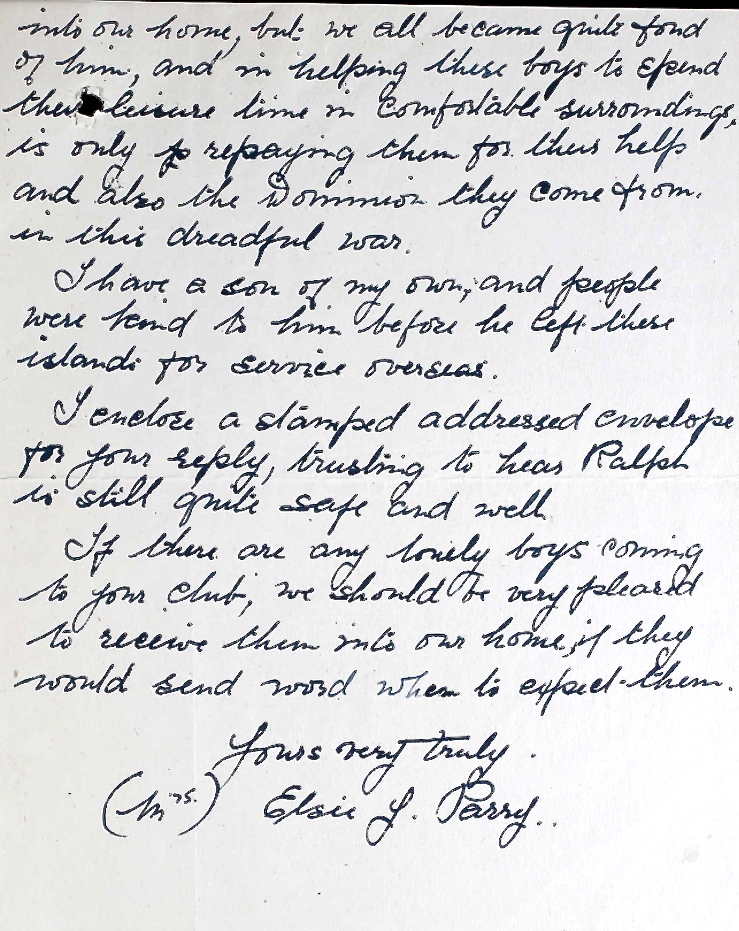 into our home, but we all became quite fond
of him, and in helping these boys to spend
their leisure time in comfortable surroundings,
is only repaying them for their help
and also the Dominion they come from.
in this dreadful war.
I have a son of my own, and people
were kind to him before he left these
islands for service overseas.
I enclose a stamped addressed envelope
for your reply, trusting to hear Ralph
is still quite safe and well
If there are any lonely boys coming
to your club, we should be very pleased
to receive them into our home, if they
would send word when to expect them.
Yours very truly.
(Mrs.) Elsie Y. Parry..